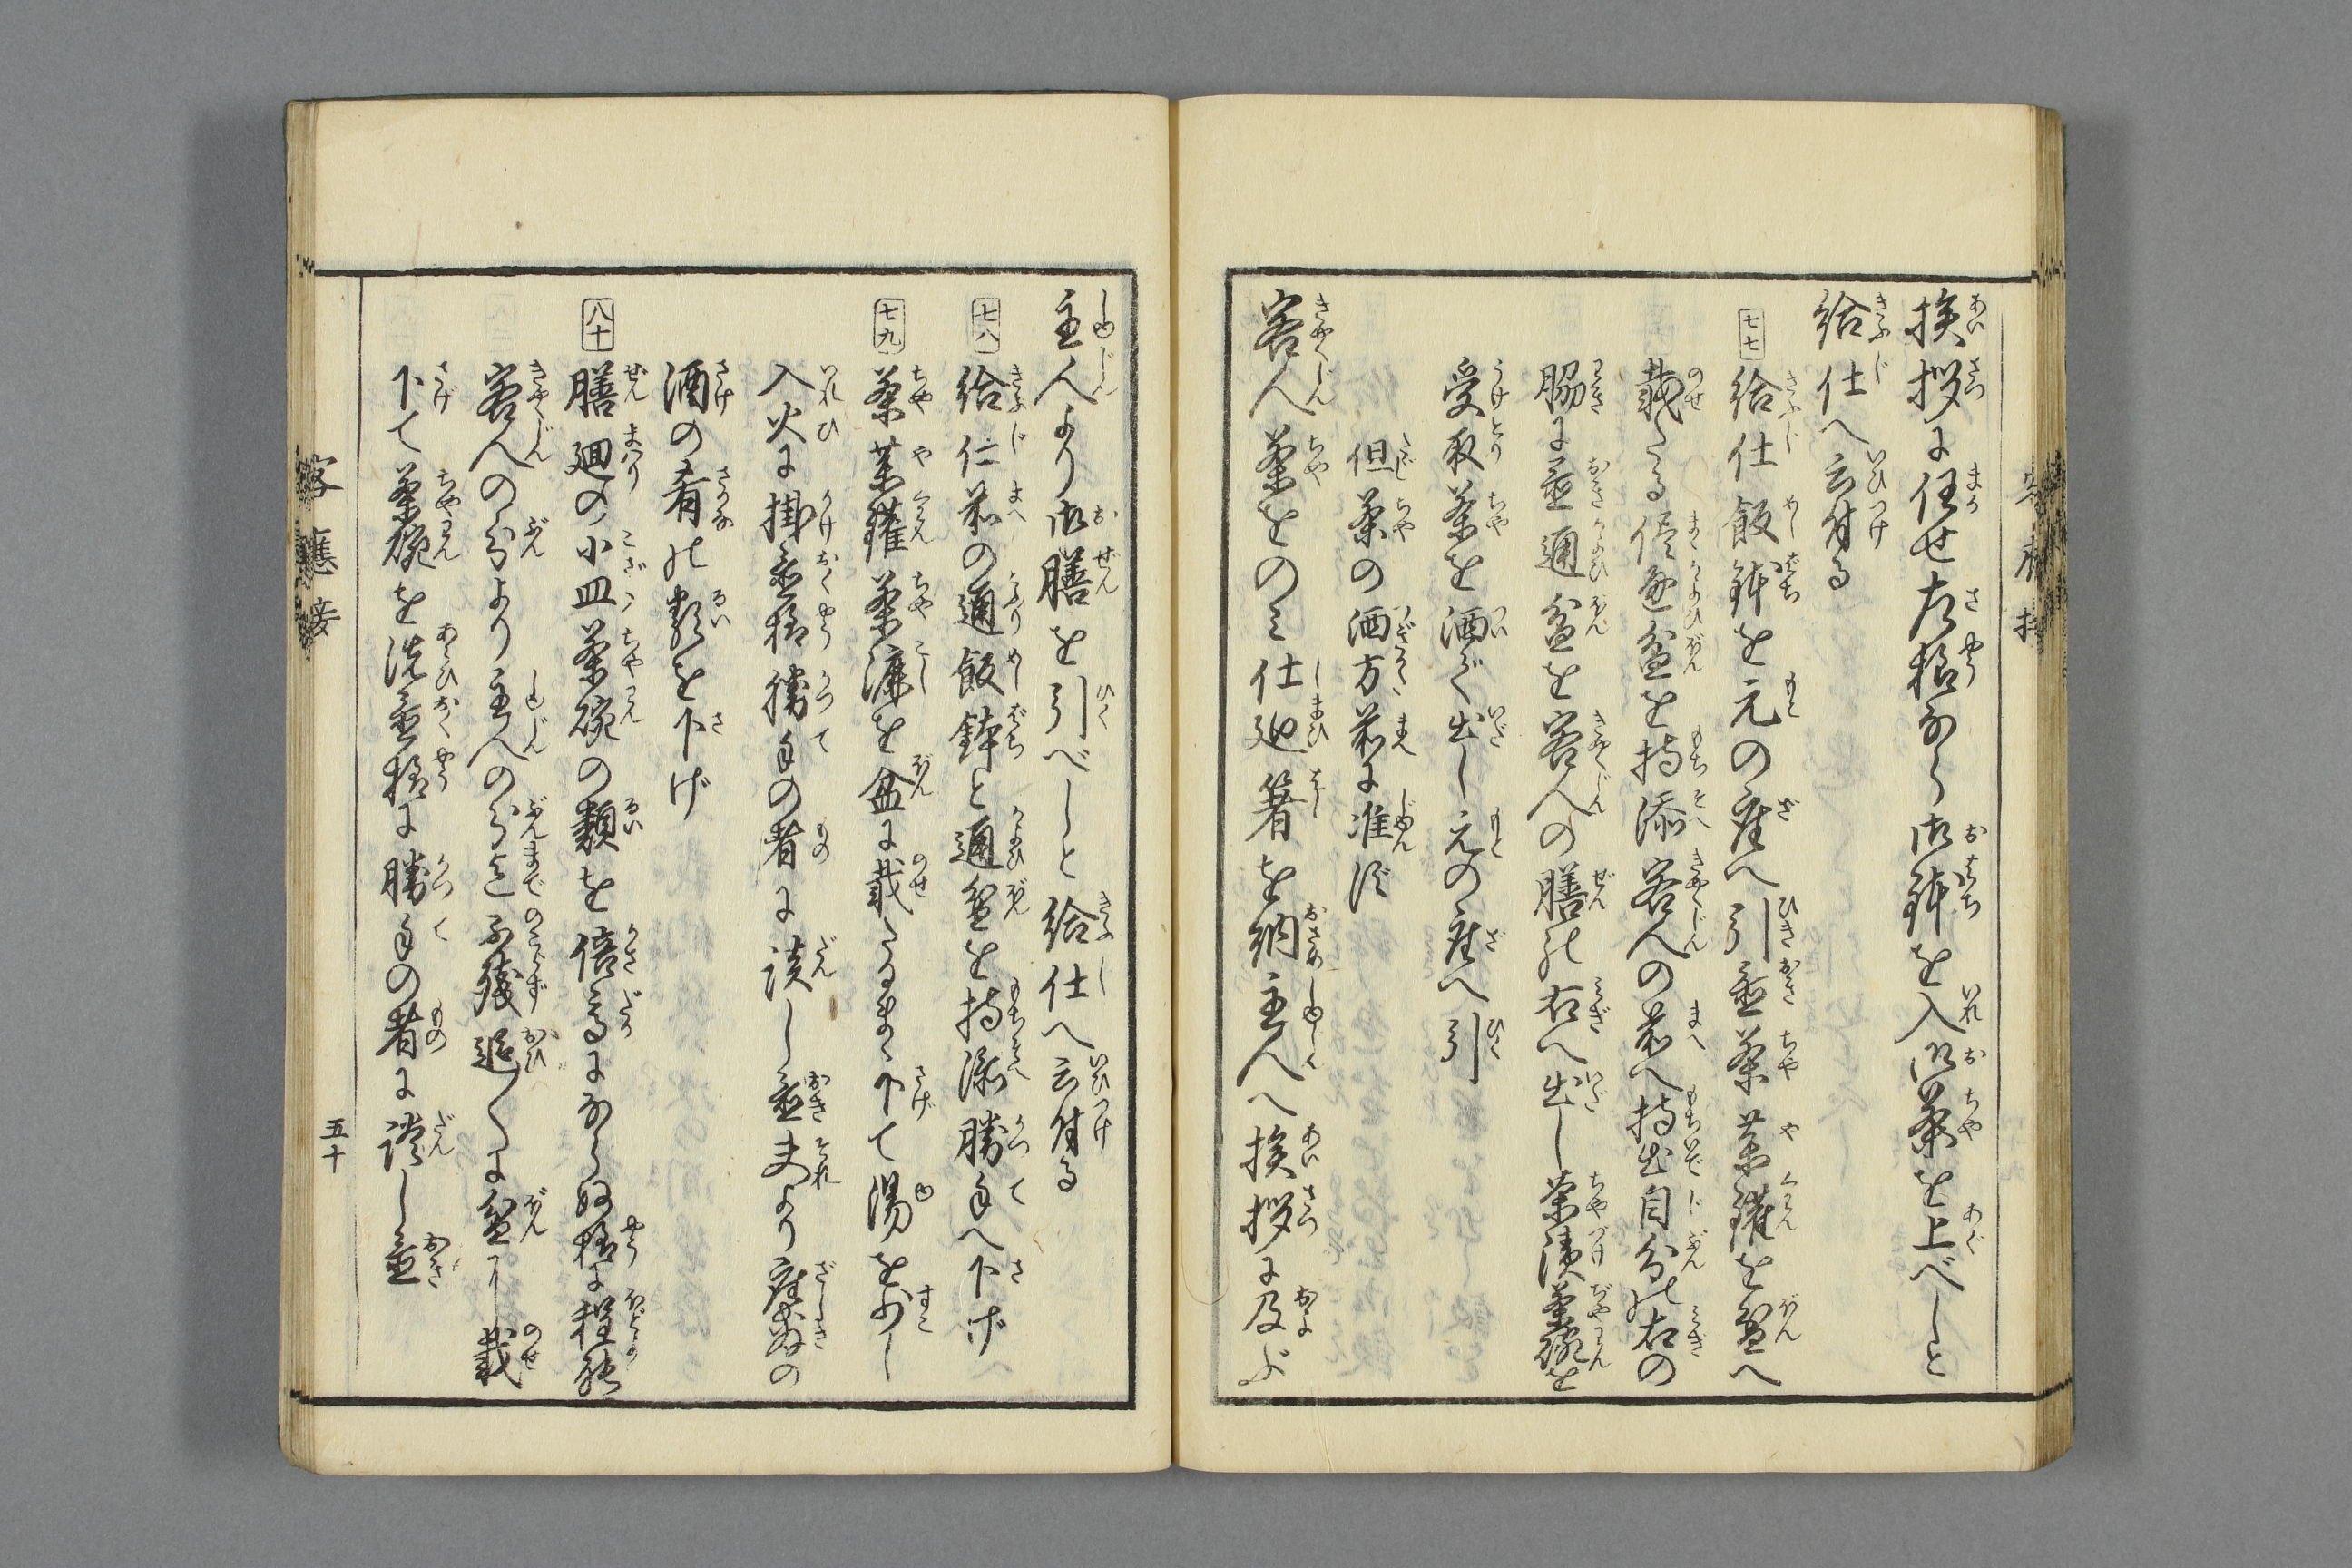 挨拶に任せ左様ならは御鉢を入れ御茶を上べしと
給仕へ云付る
七七 給仕飯鉢を元の座へ引置茶茶鑵を盆へ
載たる侭通盆を持添客人の前へ持出自分の右の
脇に置通盆を客人の膳の右へ出し茶漬茶碗を
受取茶を洒で出し元の座へ引
但茶の洒方前に准ず
客人茶をのみ仕廻箸を納主人へ挨拶に及ぶ
主人より御膳を引べしと給仕へ云付る
七八 給仁前の通飯鉢と通盆を持添勝手へ下げ
七九 茶茶鑵茶漉を盆に載たるまゝ下て湯を少し
入火に掛置様勝手の者に談し置夫より座敷の
酒の肴の類を下げ
八十 膳廻の小皿茶碗の類を倍高にならぬ様に程能
客人の分より主人の分迄不残追〱に盆に載
下て茶碗を洗置様に勝手の者に談し置
客應接
五十